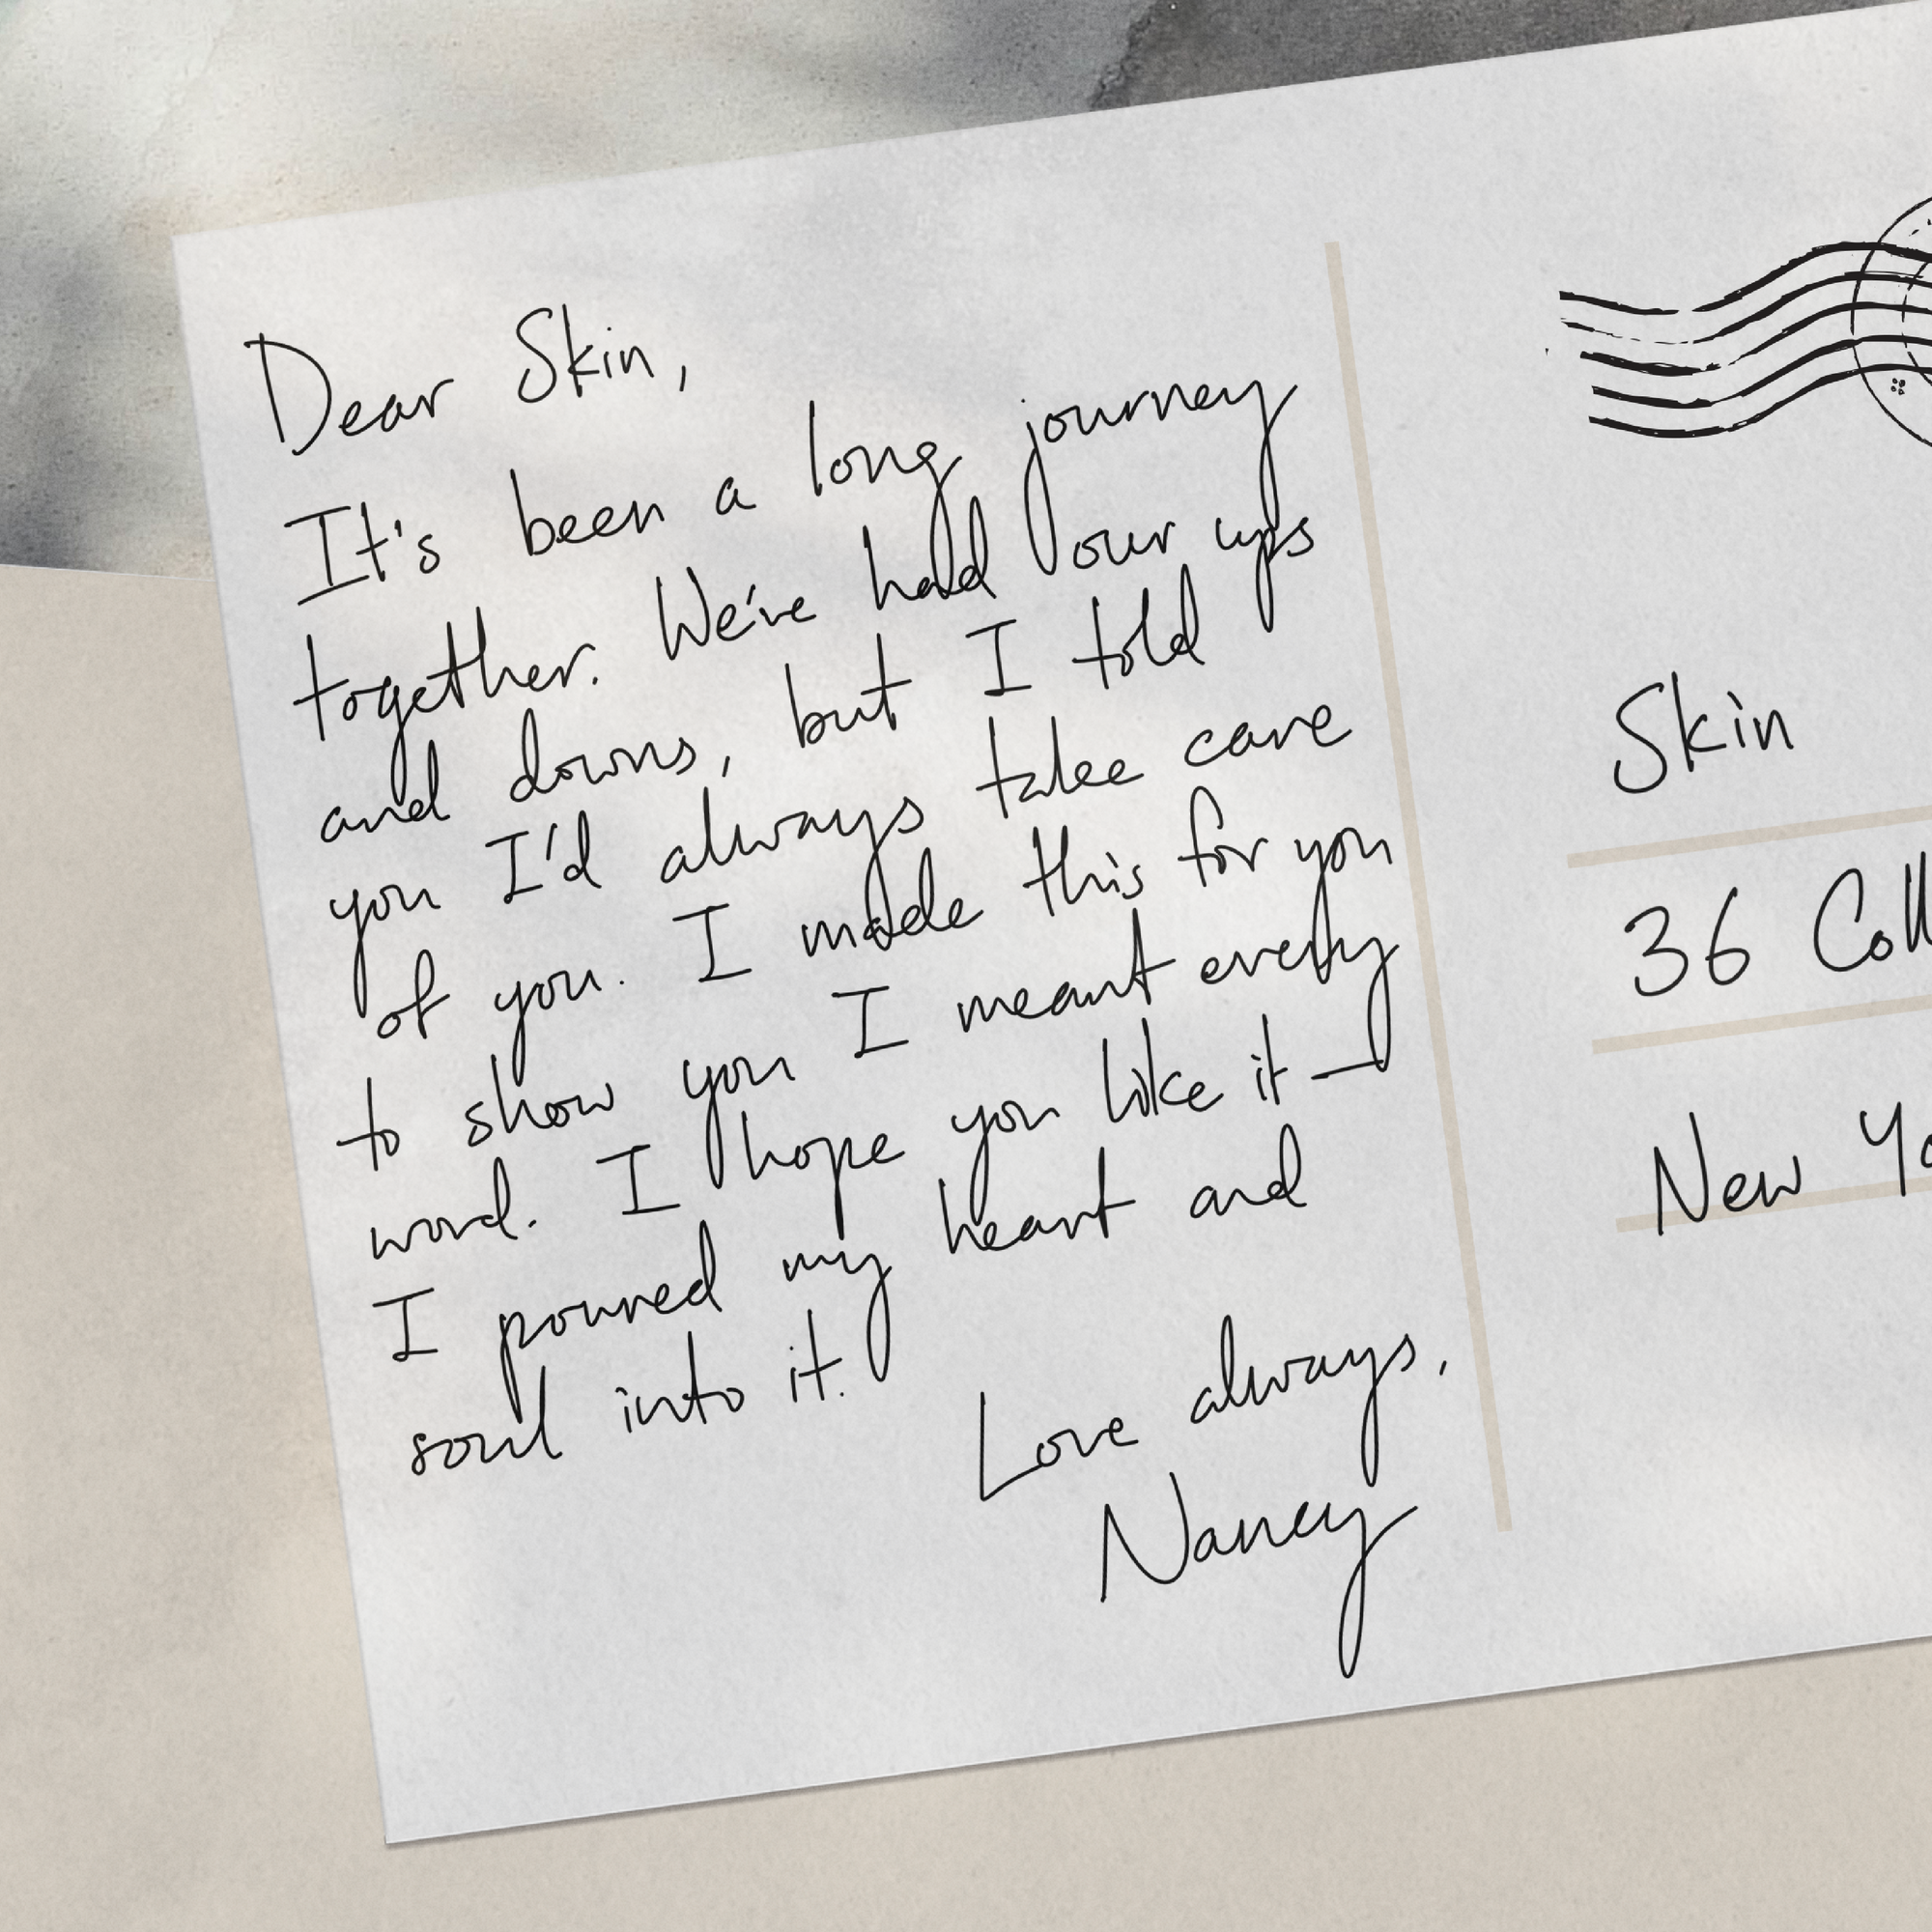 Dear Skin,
It's been a long journey
together. We've had our ups
and downs, but I told
you I'd always take care
of you. I made this for you
to show you I meant every
word. I hope you like it —
I poured my heart and
soul into it.
Love always,
Nancy
Skin
36 Coll
New Yo